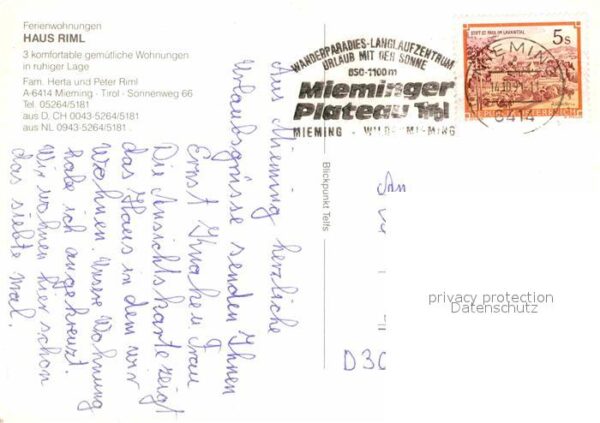 Ferienwohnungen
HAUS RIML
3 komfortable gemütliche Wohnungen
in ruhiger Lage
Fam. Herta und Peter Riml
A-6414 Mieming · Tirol · Sonnenweg 66
Tel. 05264/5181
aus D, CH 0043-5264/5181
aus NL 0943-5264/5181
WANDERPARADIES-LANGLAUFZENTRUM
URLAUB MIT DER SONNE
850-1100m
Mieminger
Plateau Tirol
MIEMING - WILDERMIEMING
STIFT ST. PAUL IM LAVANTTAL
5s
REPUBLIK ÖSTERREICH
MIEMING
6414
Aus Mieming herzliche
Urlaubsgrüsse senden Ihnen
Ernst u. Frau
Die Ansichtskarte zeigt
das Haus in dem wir
wohnen. Unsre Wohnung
habe ich angekreuzt.
Wir wohnen hier schon
das siebte mal.
Blickpunkt Telfs
An
D30
privacy protection
Datenschutz